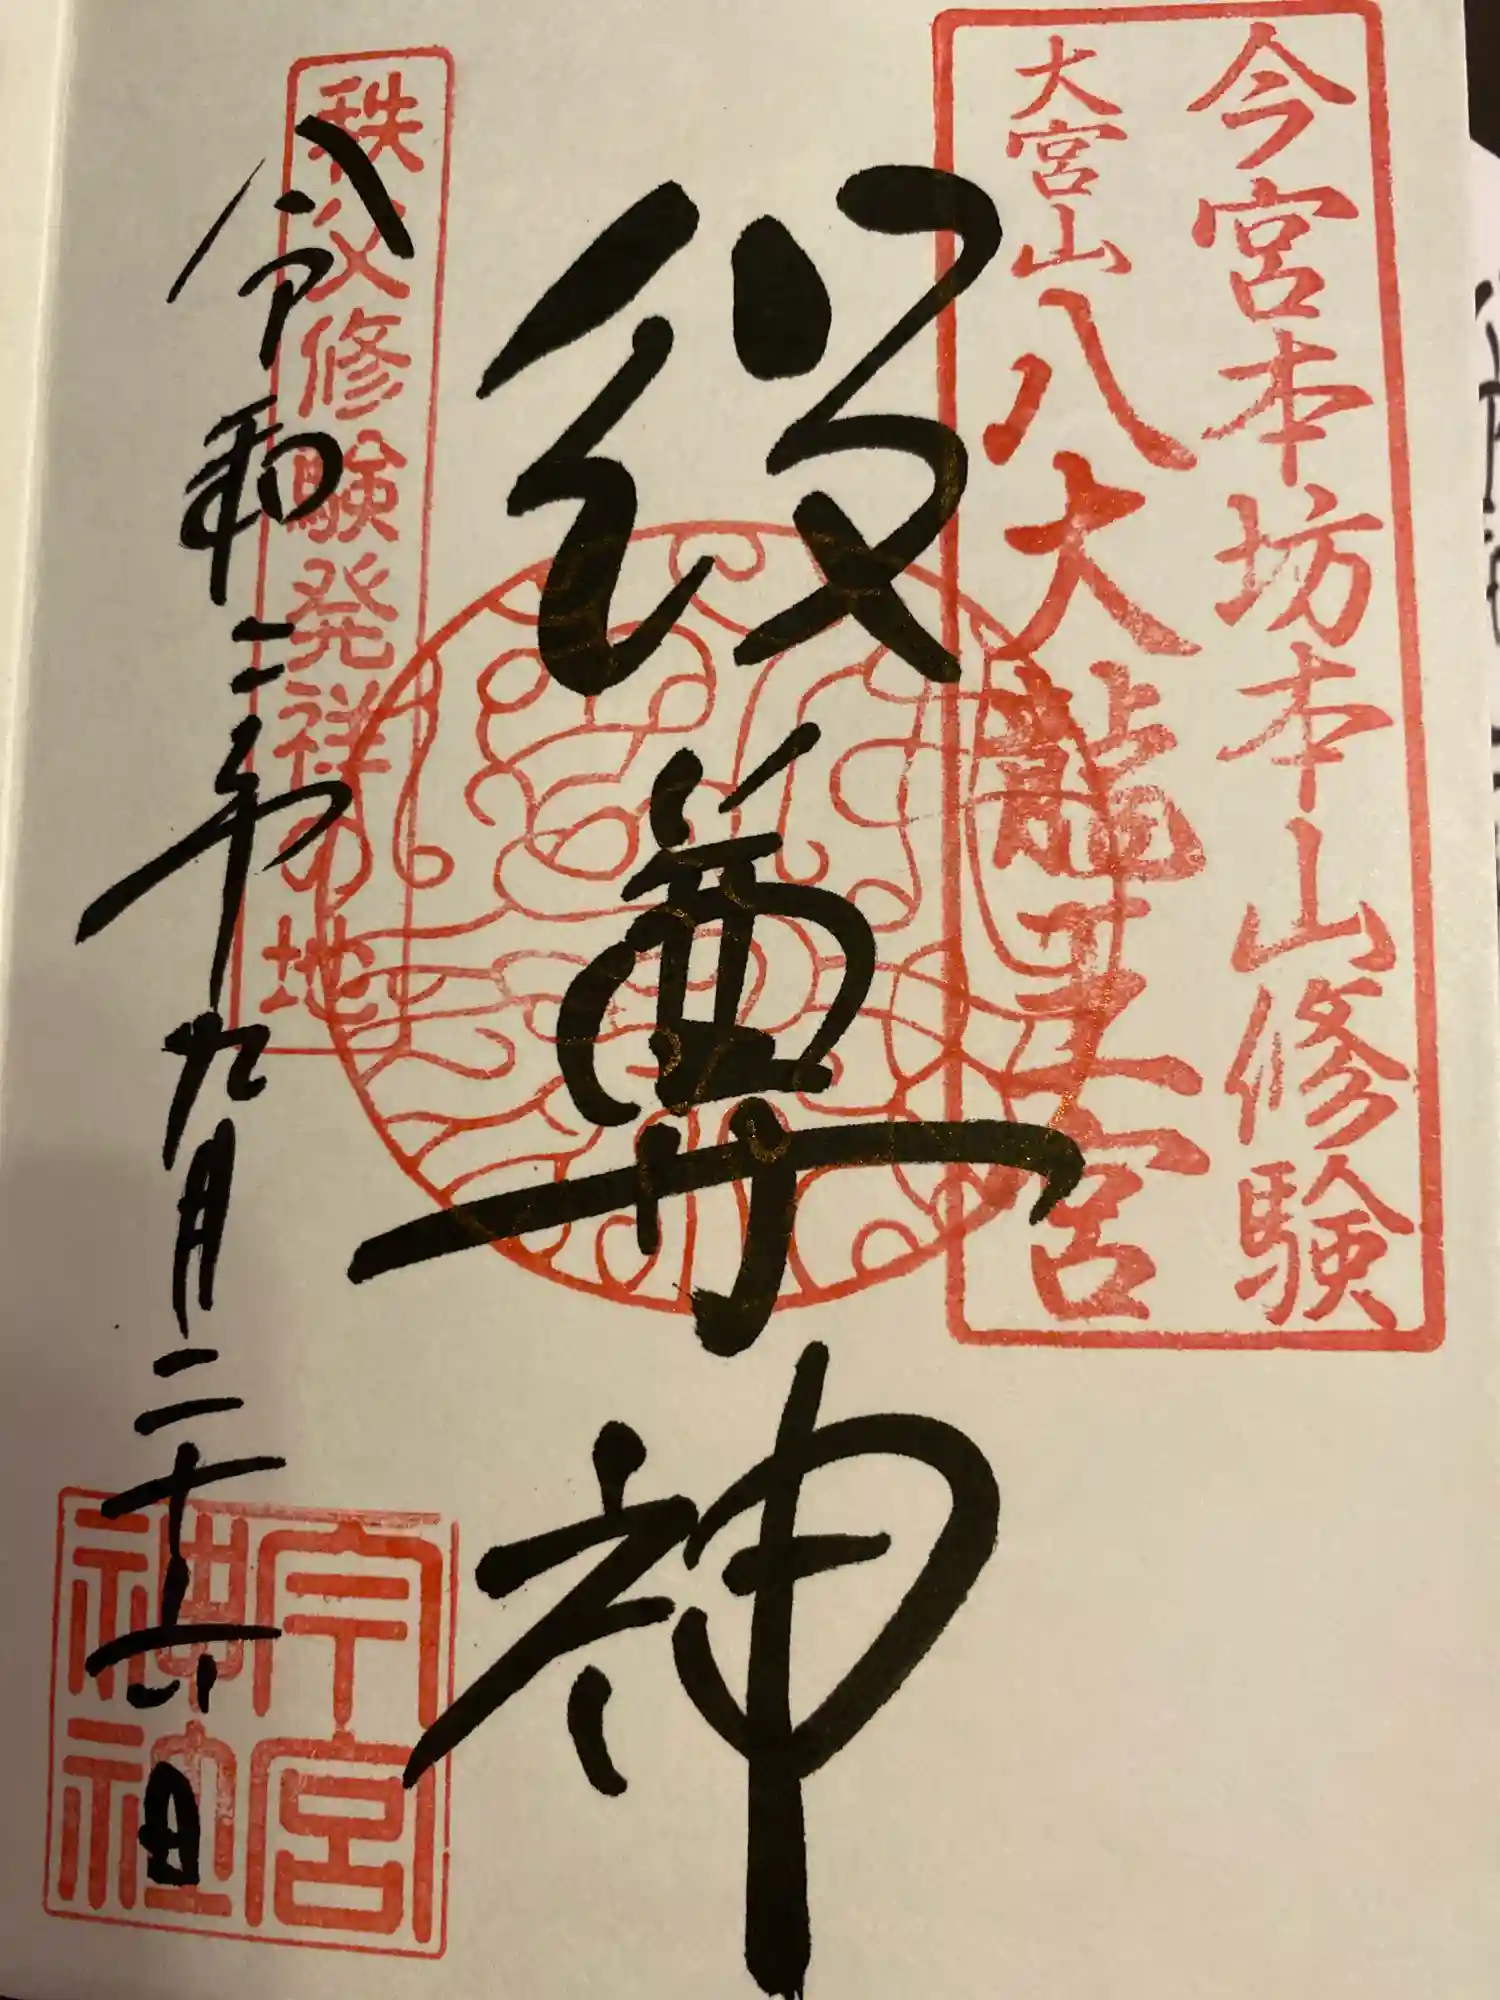 今宮本坊本山修験
大宮山八大龍王宮
役尊神
秩父修験発祥の地
令和二年九月二十六日
今宮
神社